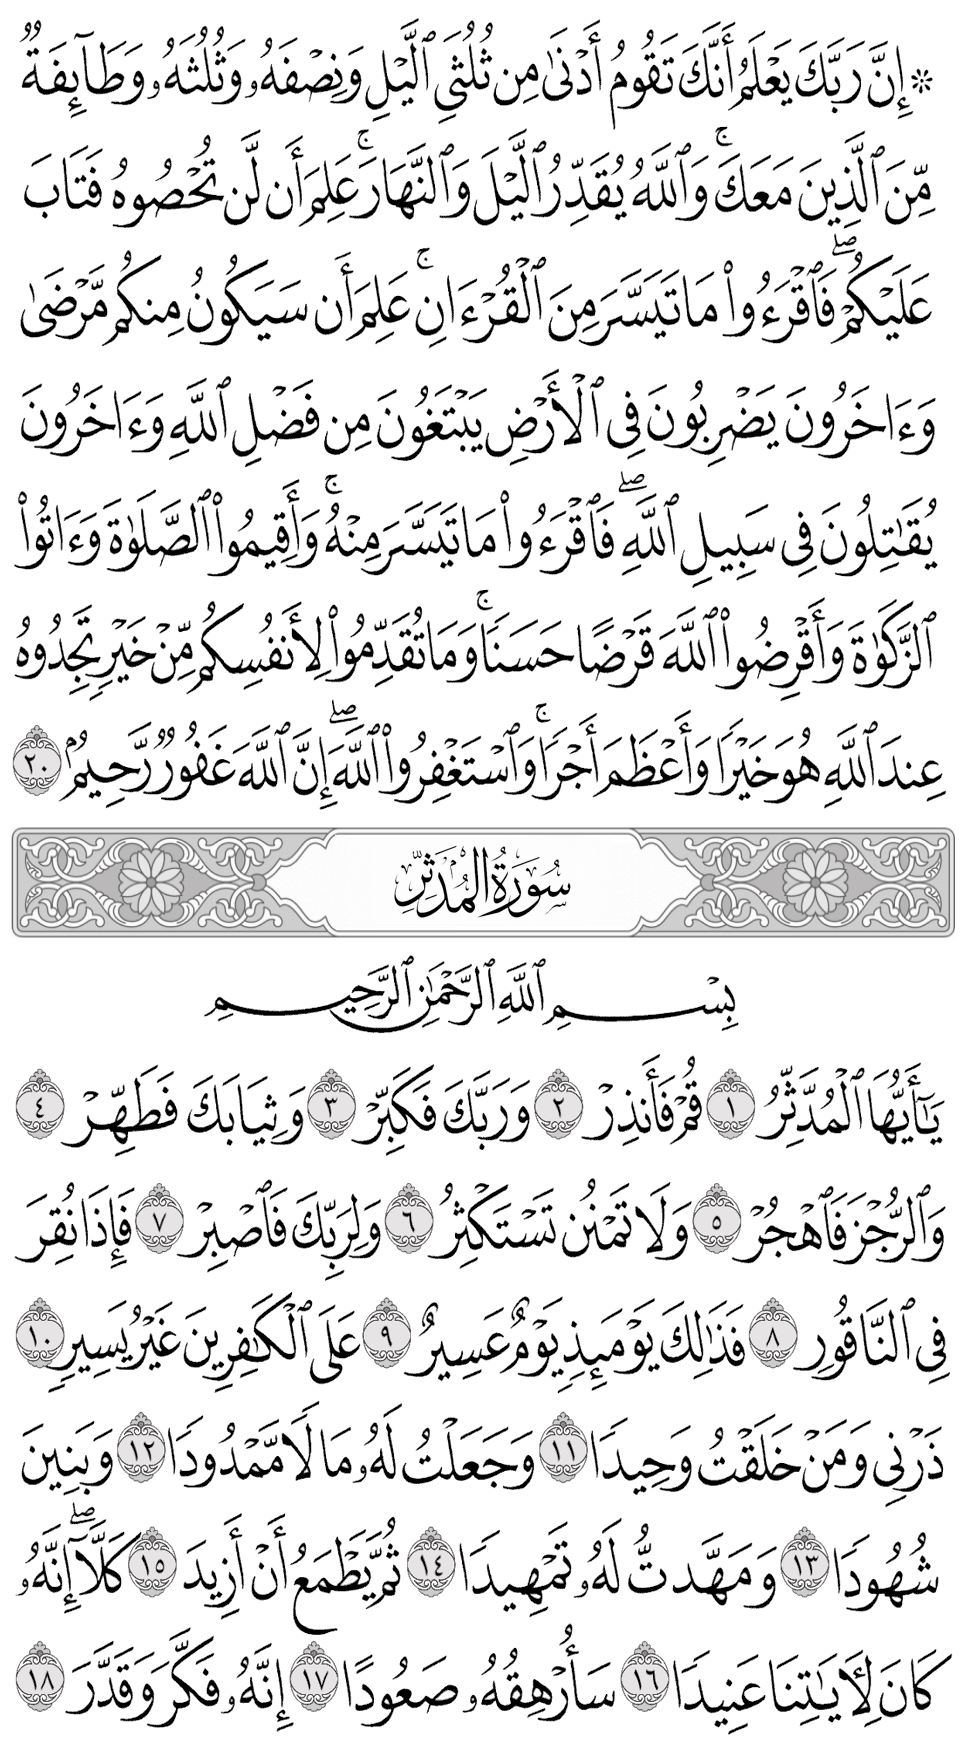 ۞ إِنَّ رَبَّكَ يَعْلَمُ أَنَّكَ تَقُومُ أَدْنَىٰ مِن ثُلُثَيِ ٱلَّيْلِ وَنِصْفَهُۥ وَثُلُثَهُۥ وَطَآئِفَةٌ
مِّنَ ٱلَّذِينَ مَعَكَۚ وَٱللَّهُ يُقَدِّرُ ٱلَّيْلَ وَٱلنَّهَارَۚ عَلِمَ أَن لَّن تُحْصُوهُ فَتَابَ
عَلَيْكُمْۖ فَٱقْرَءُوا۟ مَا تَيَسَّرَ مِنَ ٱلْقُرْءَانِۚ عَلِمَ أَن سَيَكُونُ مِنكُم مَّرْضَىٰ
وَءَاخَرُونَ يَضْرِبُونَ فِى ٱلْأَرْضِ يَبْتَغُونَ مِن فَضْلِ ٱللَّهِ وَءَاخَرُونَ
يُقَٰتِلُونَ فِى سَبِيلِ ٱللَّهِۖ فَٱقْرَءُوا۟ مَا تَيَسَّرَ مِنْهُۚ وَأَقِيمُوا۟ ٱلصَّلَوٰةَ وَءَاتُوا۟
ٱلزَّكَوٰةَ وَأَقْرِضُوا۟ ٱللَّهَ قَرْضًا حَسَنًاۚ وَمَا تُقَدِّمُوا۟ لِأَنفُسِكُم مِّنْ خَيْرٍ تَجِدُوهُ
عِندَ ٱللَّهِ هُوَ خَيْرًا وَأَعْظَمَ أَجْرًاۚ وَٱسْتَغْفِرُوا۟ ٱللَّهَۖ إِنَّ ٱللَّهَ غَفُورٌ رَّحِيمٌۢ ٢٠
سُورَةُ الْمُدَّثِّرِ
بِسْمِ ٱللَّهِ ٱلرَّحْمَٰنِ ٱلرَّحِيمِ
يَٰٓأَيُّهَا ٱلْمُدَّثِّرُ ١ قُمْ فَأَنذِرْ ٢ وَرَبَّكَ فَكَبِّرْ ٣ وَثِيَابَكَ فَطَهِّرْ ٤
وَٱلرُّجْزَ فَٱهْجُرْ ٥ وَلَا تَمْنُن تَسْتَكْثِرُ ٦ وَلِرَبِّكَ فَٱصْبِرْ ٧ فَإِذَا نُقِرَ
فِى ٱلنَّاقُورِ ٨ فَذَٰلِكَ يَوْمَئِذٍ يَوْمٌ عَسِيرٌ ٩ عَلَى ٱلْكَٰفِرِينَ غَيْرُ يَسِيرٍ ١٠
ذَرْنِى وَمَنْ خَلَقْتُ وَحِيدًا ١١ وَجَعَلْتُ لَهُۥ مَالًا مَّمْدُودًا ١٢ وَبَنِينَ
شُهُودًا ١٣ وَمَهَّدتُّ لَهُۥ تَمْهِيدًا ١٤ ثُمَّ يَطْمَعُ أَنْ أَزِيدَ ١٥ كَلَّآۖ إِنَّهُۥ
كَانَ لِءَايَٰتِنَا عَنِيدًا ١٦ سَأُرْهِقُهُۥ صَعُودًا ١٧ إِنَّهُۥ فَكَّرَ وَقَدَّرَ ١٨